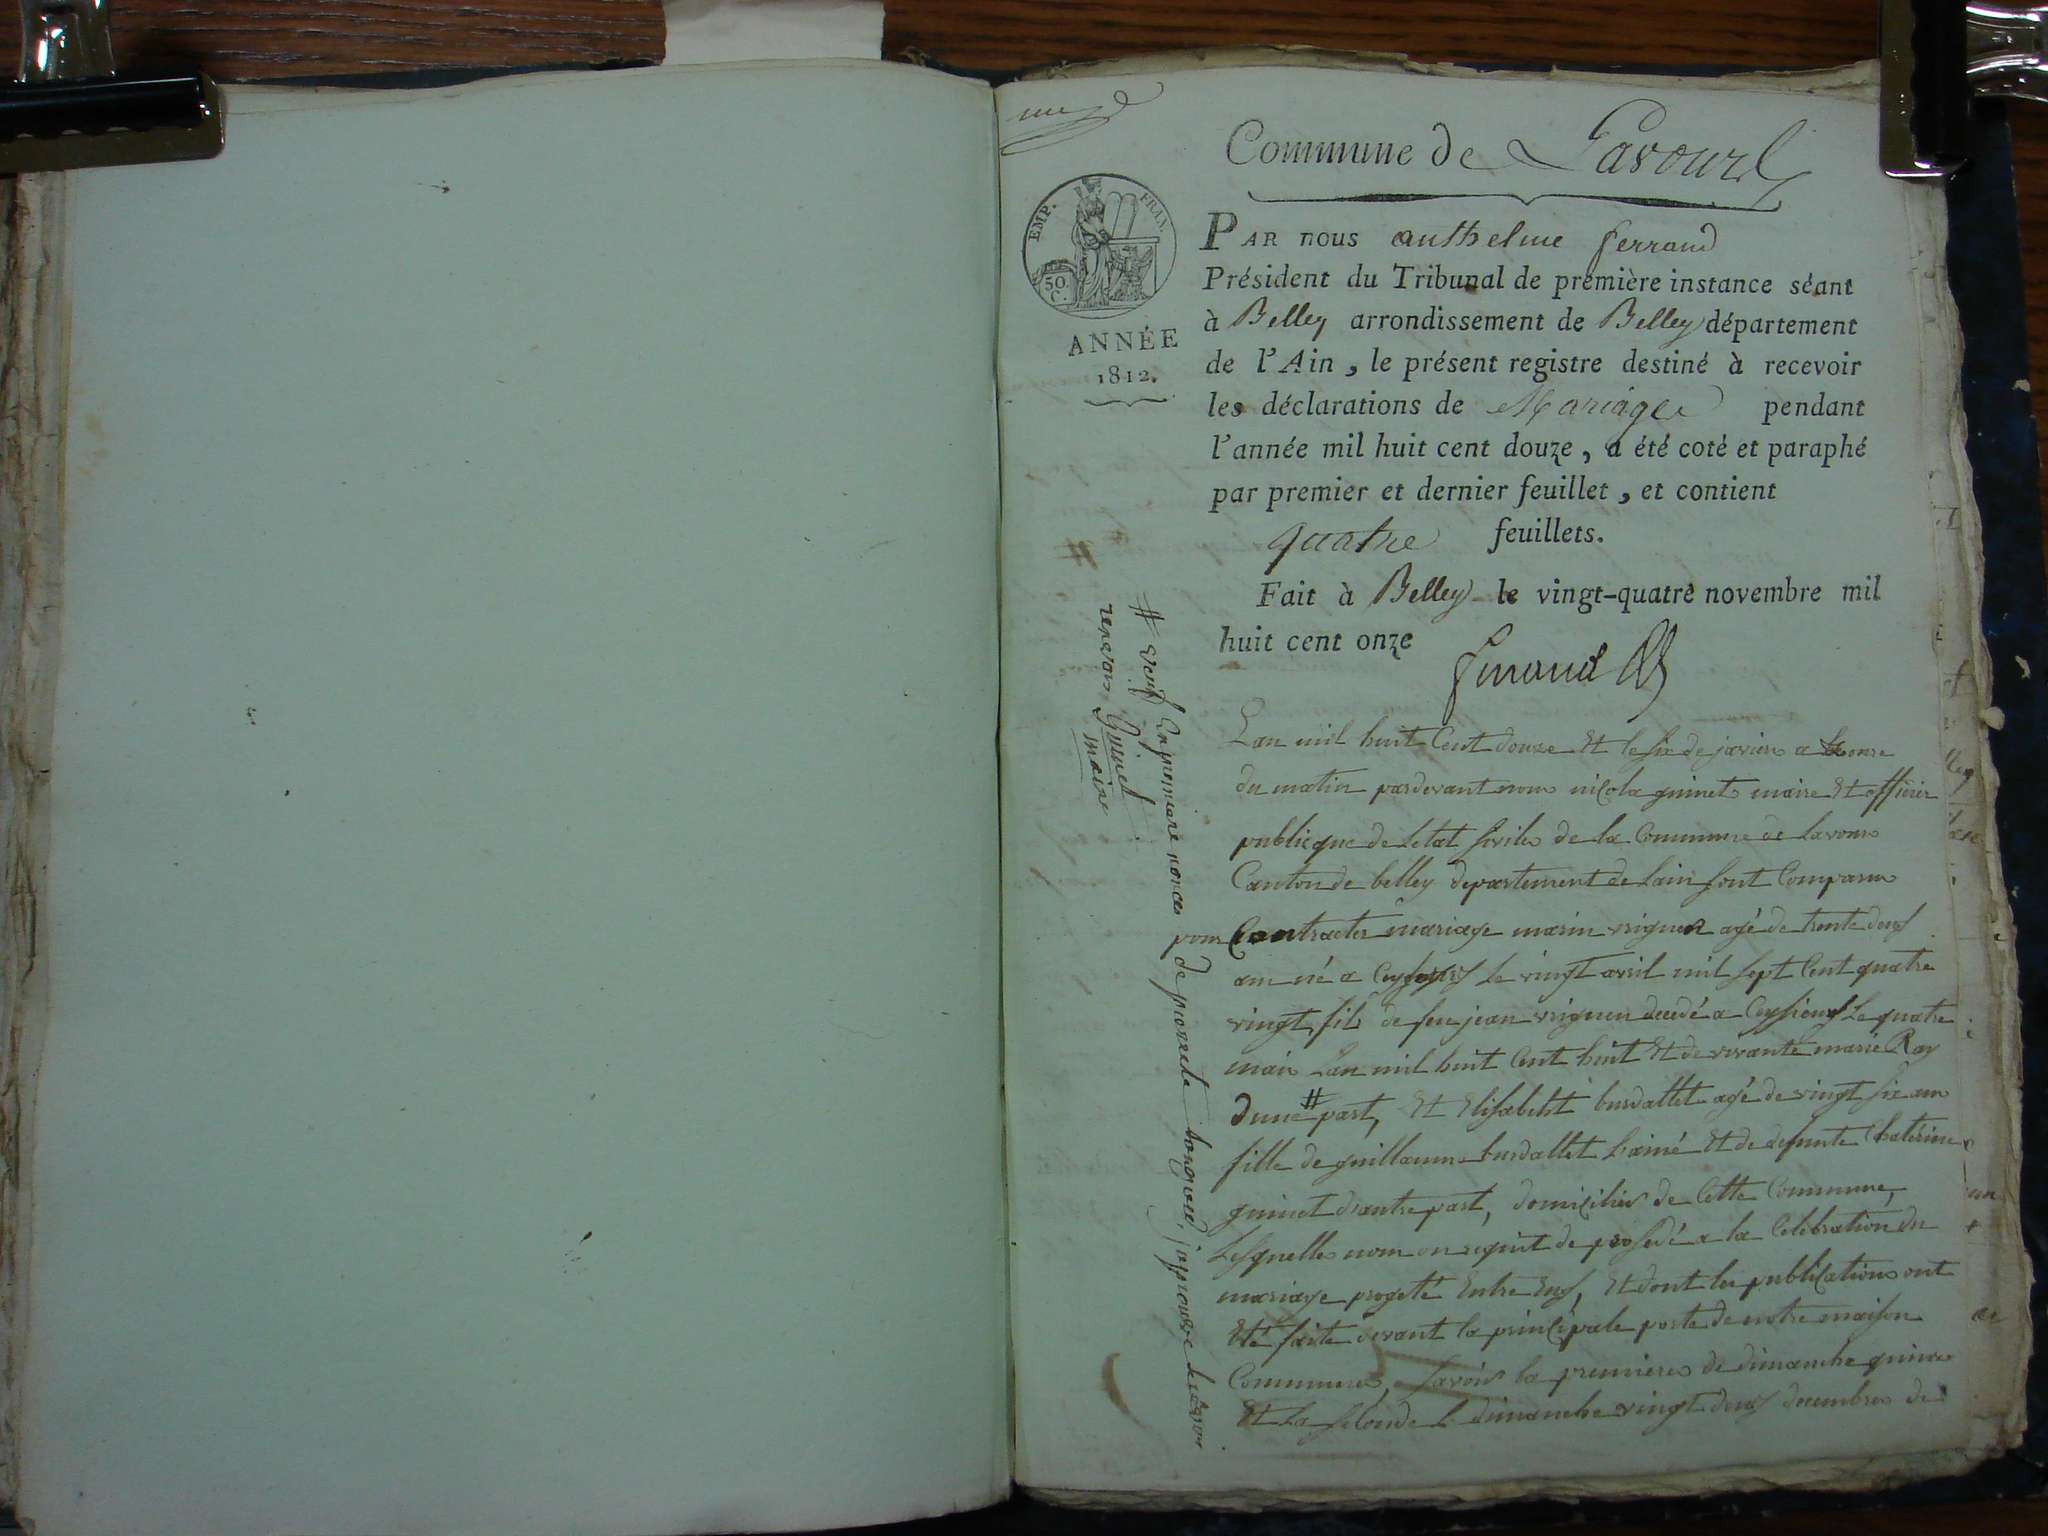 une
EMP. FRAN.
50.
C.
ANNÉE
1812.
Commune de Lavours
PAR nous anthelme ferrand
Président du Tribunal de première instance séant
à Belley arrondissement de Belley département
de l'Ain, le présent registre destiné à recevoir
les déclarations de Mariage pendant
l'année mil huit cent douze, a été coté et paraphé
par premier et dernier feuillet, et contient
quatre feuillets.
Fait à Belley le vingt-quatre novembre mil
huit cent onze
ferrand
Lan mil huit Cent douze Et le six de javier a onze
du matin pardevant nous nicola guinet maire Et officier
publicque de letat sivile de la Commune de lavour
Canton de belley departement de lain sont Comparu
pour Contracter mariage marin vriguen agé de trente deux
an né a le vingt avril mil sept Cent quatre
vingt, fils de feu jean vriguen decedé a Ceyssieux Le quatre
mai Lan mil huit Cent huit Et de vivante marie Ray
dune # part, Et Elisabeht burdallet agé de vingt six an
fille de guillaume burdallet lainé Et de defunte Chaterine
guinet dautre part, domicilies de Cette Commune,
Lesquelle nous on requit de prosedé a la Celebration du
mariage progeté Entre Eux, Et dont les publications ont
Eté faite devant la principale porte de notre maison
Commune, savoir la premiere de dimanche quinze
Et La seconde le dimanche vingt deux decembre de
# veuf En premiere nonces de pierrette, japrouve le
renvois Guinet
maire